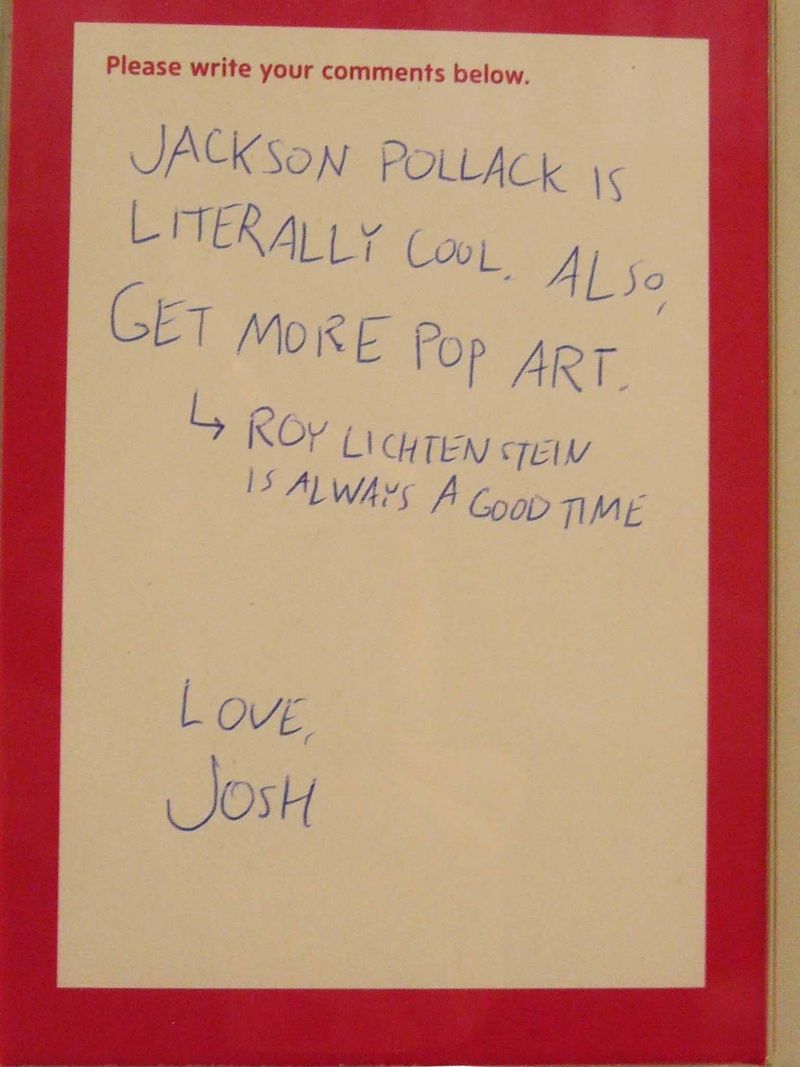 Please write your comments below.
JACKSON POLLACK IS
LITERALLY COOL. ALSO,
GET MORE POP ART.
↳ ROY LICHTENSTEIN
IS ALWAYS A GOOD TIME
LOVE,
JOSH